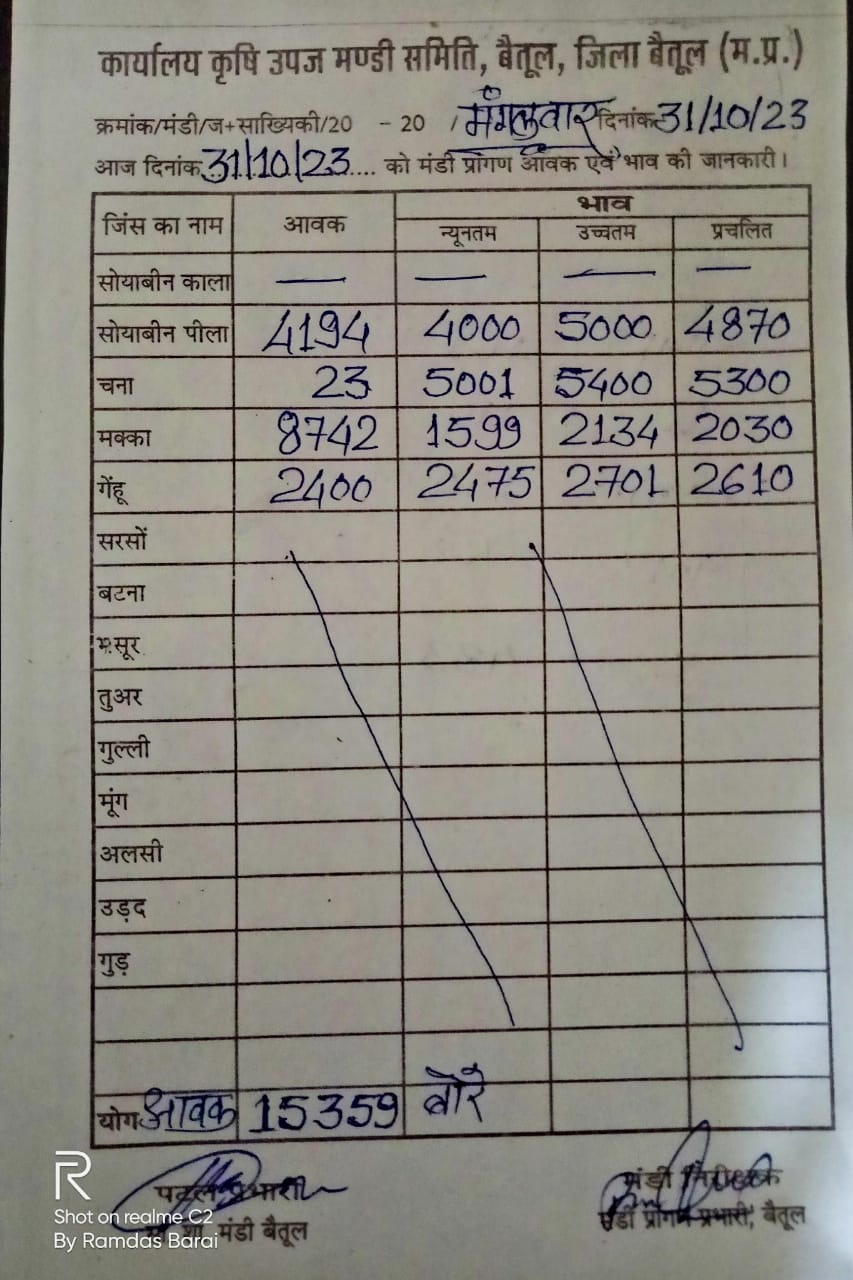 कार्यालय कृषि उपज मण्डी समिति, बैतूल, जिला बैतूल (म.प्र.)
क्रमांक/मंडी/ज+साख्यिकी/20 - 20 / मंगलवार दिनांक 31/10/23
आज दिनांक 31/10/23.... को मंडी प्रांगण आवक एवं भाव की जानकारी।
जिंस का नाम आवक भाव
न्यूनतम उच्चतम प्रचलित
सोयाबीन काला — — — —
सोयाबीन पीला 4194 4000 5000 4870
चना 23 5001 5400 5300
मक्का 8742 1599 2134 2030
गेंहू 2400 2475 2701 2610
सरसों
बटना
मसूर
तुअर
गुल्ली
मूंग
अलसी
उड़द
गुड़
योग आवक 15359 बोरे
प्रभारी मंडी निरीक्षक
मंडी बैतूल मंडी प्रांगण प्रभारी, बैतूल
R
Shot on realme C2
By Ramdas Barai